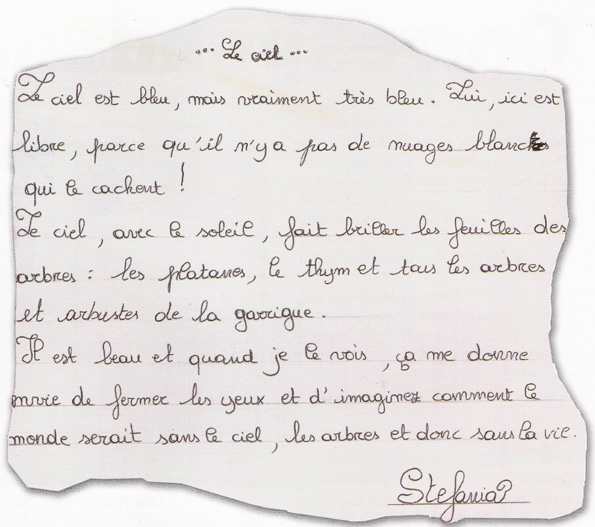 ... Le ciel ...
Le ciel est bleu, mais vraiment très bleu. Lui, ici est
libre, parce qu'il n'y a pas de nuages blancs
qui le cachent !
Le ciel, avec le soleil, fait briller les feuilles des
arbres : les platanes, le thym et tous les arbres
et arbustes de la garrigue.
Il est beau et quand je le vois, ça me donne
envie de fermer les yeux et d'imaginez comment le
monde serait sans le ciel, les arbres et donc sans la vie.
Stefania